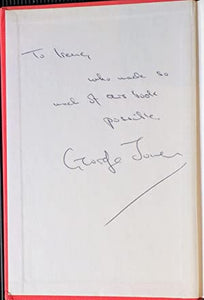 To Irene,
who made so
much of our book
possible.
George Jones